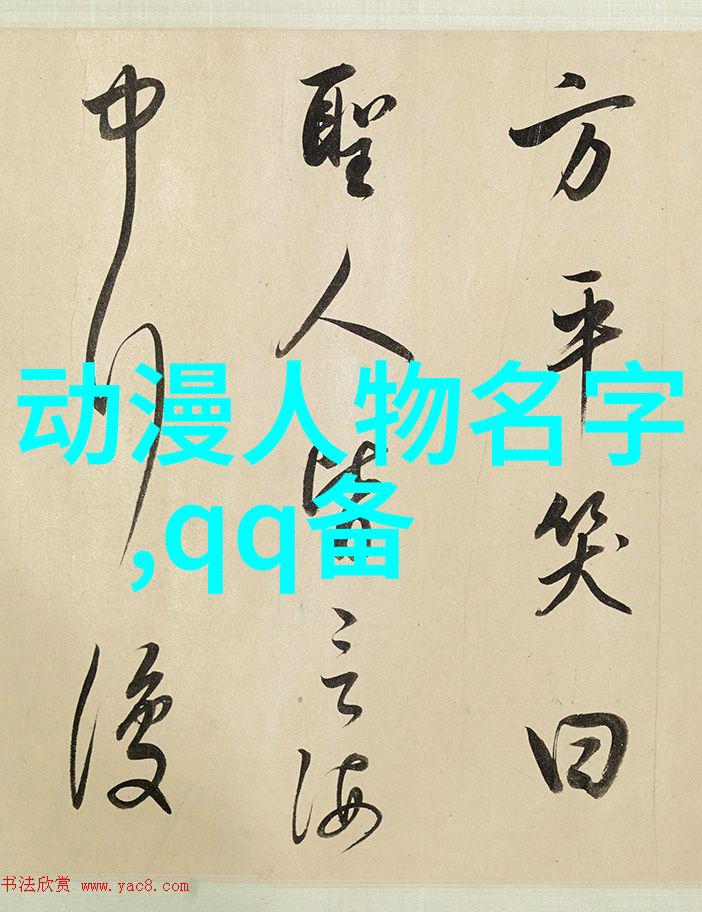 方平笑曰
聖人皆言海
中行復
动漫人物名字
,qq备
书法欣赏 www.yac8.com